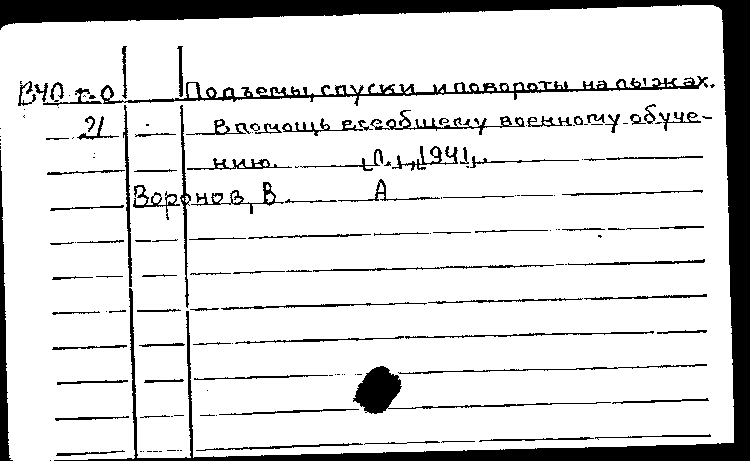 ВЧО п.о Подъемы, спуски и повороты на лыжах.
21 В помощь всеобщему военному обуче-
нию. [Л.], [1941].
Воронов, В. А